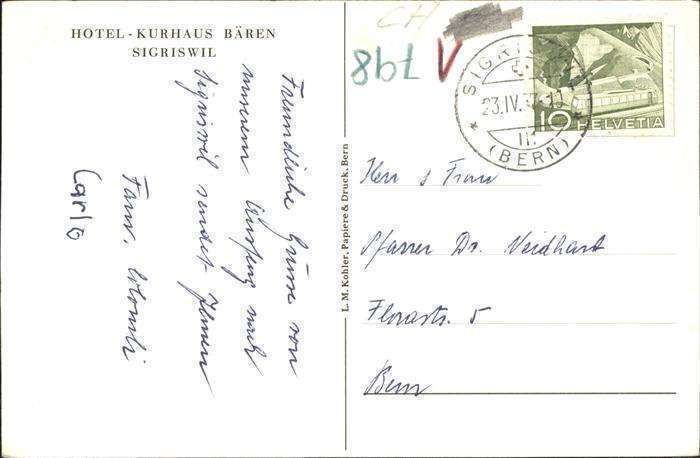 HOTEL-KURHAUS BÄREN
SIGRISWIL
Freundliche Grüsse von
unserem Ausflug nach
Sigriswil sendet Ihnen
Fam.
Carlo
L. M. Kohler, Papiere & Druck, Bern
CH
798 V
SIGRISWIL
23.IV.
(BERN)
10 HELVETIA
Herr & Frau
Pfarrer Dr. Neidhart
Florastr. 5
Bern